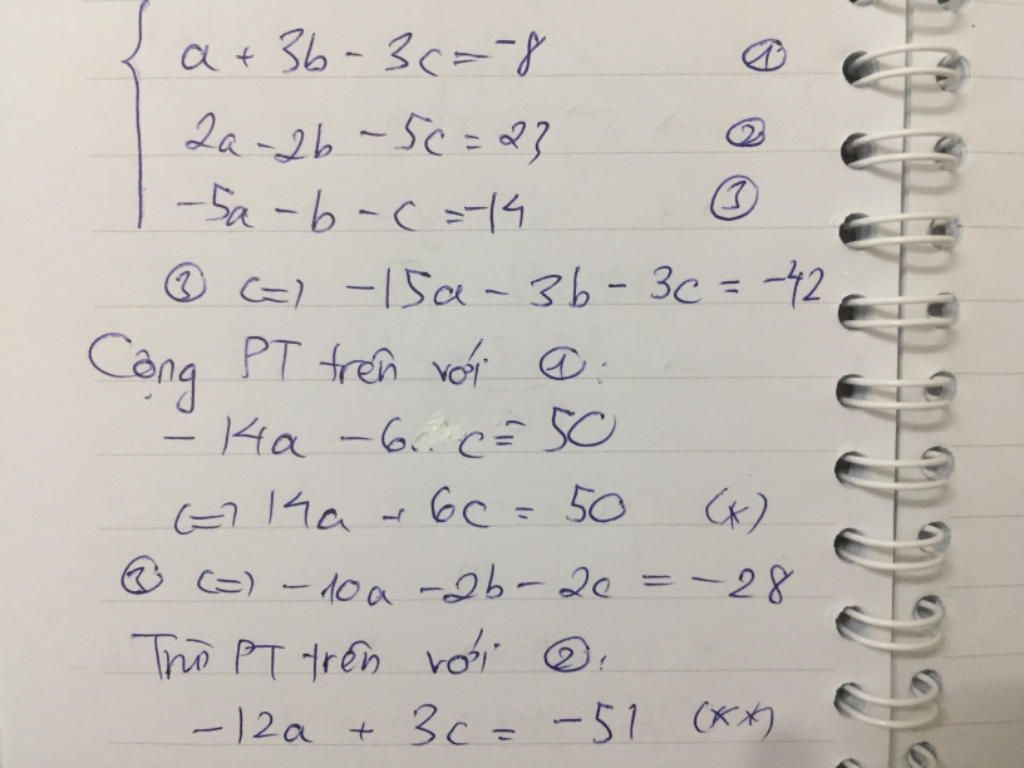 a + 3b - 3c = -8 ①
2a - 2b - 5c = 23 ②
-5a - b - c = -14 ③
③ <=> -15a - 3b - 3c = -42
Cộng PT trên với ①:
-14a - 6c = 50
<=> 14a + 6c = 50 (*)
③ <=> -10a - 2b - 2c = -28
Trừ PT trên với ②:
-12a + 3c = -51 (**)